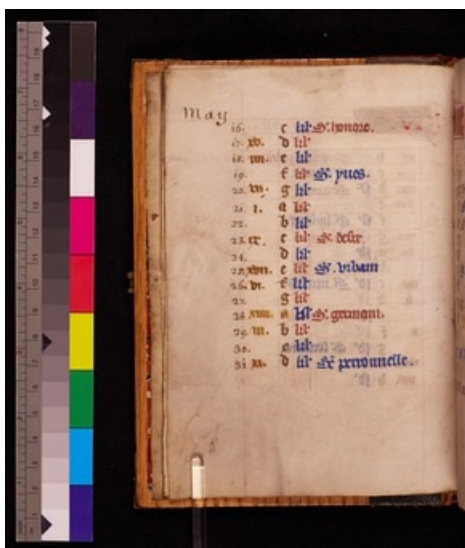 May
16. c kl' St honore.
17. xv. d kl'
18. iiii. e kl'
19. f kl' St yues.
20. xii. g kl'
21. i. a kl'
22. b kl'
23. ix. c kl' St desir.
24. d kl'
25. xvii. e kl' St vrbain
26. vi. f kl'
27. g kl'
28. xiiii. a kl' St germain.
29. iii. b kl'
30. c kl'
31. xi. d kl' Ste peronnelle.